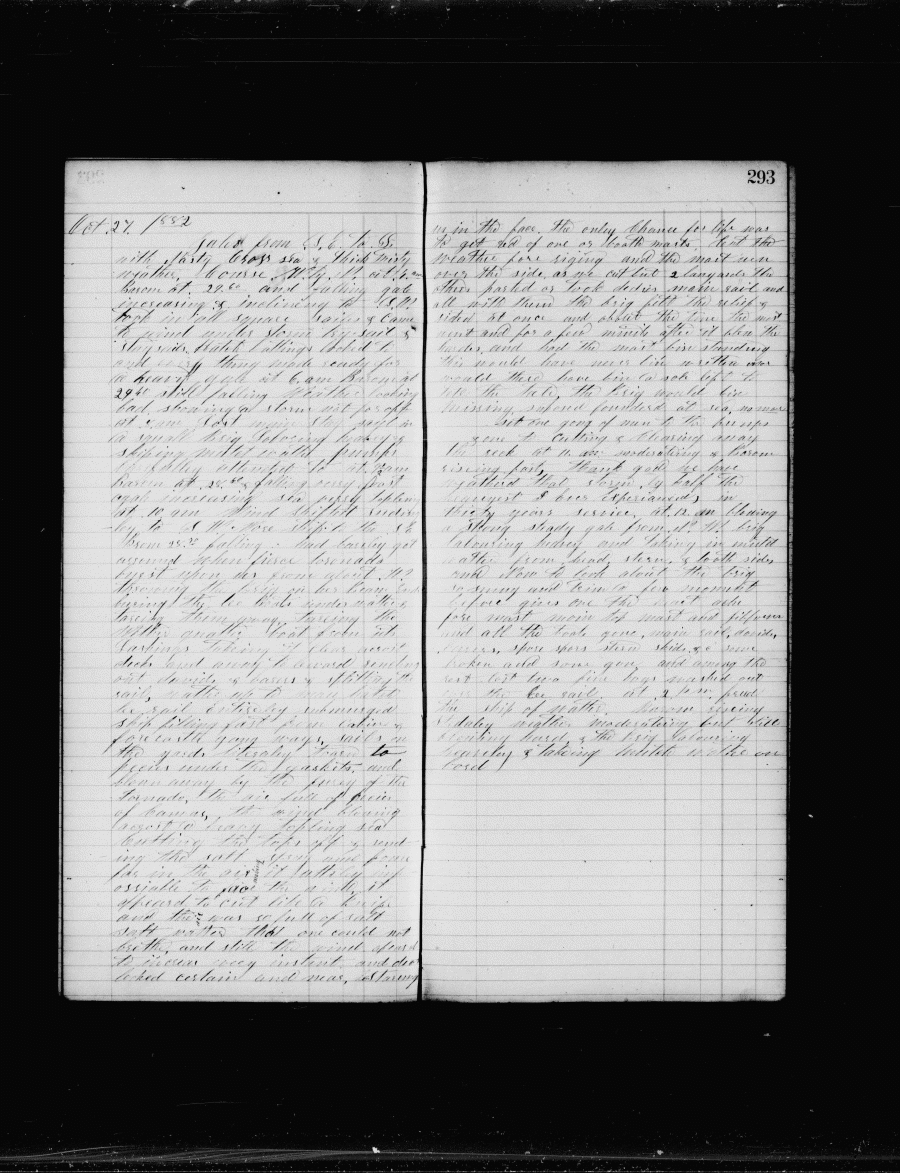 293
Oct. 27. 1882
Gales from S. E. to S.
with nasty Cross sea & thick misty
weather, Course
Barom at. 29.60 and falling gale
increasing & inclining to
took in all square & came
to wind under storm trysail &
staysails hatch battings looked to
and every thing made ready for
a heavy gale at 6 am Barom at
29.40 still falling weather looking
bad, showing a storm not far off
at am lost main stay sail in
a squall brig Laboring heavy &
shiping mutch watter pumps
attended to at am
Barom at 28. & falling very fast
gale increasing sea very topling
at 10 am wind shifted
ly to S W. ship to the S E
Barom 28. falling: had barely got
around when furse tornado
burst upon us from about
throwing the brig on her beam
buring the lee boats under watter &
taring them away, taring the
boat from its
Lashings taking it clear acrost
deck and away to leward
out davids & & splitting the
sail, watter up to main hatch
lee rail entireley submurged
ship filling fast from cabin &
forecastle gang ways, sails on
the yards litraley torn to
peices under the gaskets, and
blown away by the furey of the
tornado, the air full of peices
of canvas, the wind blowing
a heavy topling sea
Cutting the tops off & send-
ing the salt spray and foam
far in the air it utterly imp-
ossiable to face the wind, it
apeared to cut like a knife
and the air was so full of salt
salt watter that one could not
brethe, and still the wind apeared
to increas every instant and death
looked certain and near, staring
us in the face, the only Chance for life was
to get red of one or booth masts, Cut the
weather fore riging and the mast went
over the side, as we cut but 2 lanyards the
others parted or took dedies main sail and
all with them the brig felt the relief &
rited at once and about the time the mast
went and for a few minits after it blew the
harder, and had the mast bin standing
this would have never bin written nor
would there have bin a sole left to
tell the tale, the brig would bin
missing, suposed founderd at sea, no more
Set one gang of men to the pumps
& one to cutting & clearing away
the reck at 11 am moderating & barom
riseing fast, thank god we have
weathred that storm, by half the
hevyest I ever experianced, in
thirty years service, at 12 am blowing
a strong steady gale from W. brig
labouring hevey and taking in mutch
watter from head, stern, & booth sides
and Now to look about the brig
so and trim a few moments
before gives one the hart ake
fore mast main top mast and jibboom
and all the boats gone, main sail, davids,
spare spars stern skids, &c some
broken and some gon, and among the
rest lost two fine dogs washed out
over the lee rail at 2 p.m. freed
the ship of watter, barom riseing
Steadey weather moderating but still
blowing hard, & the brig labouring
heaveley & taking mutch watter on
bord